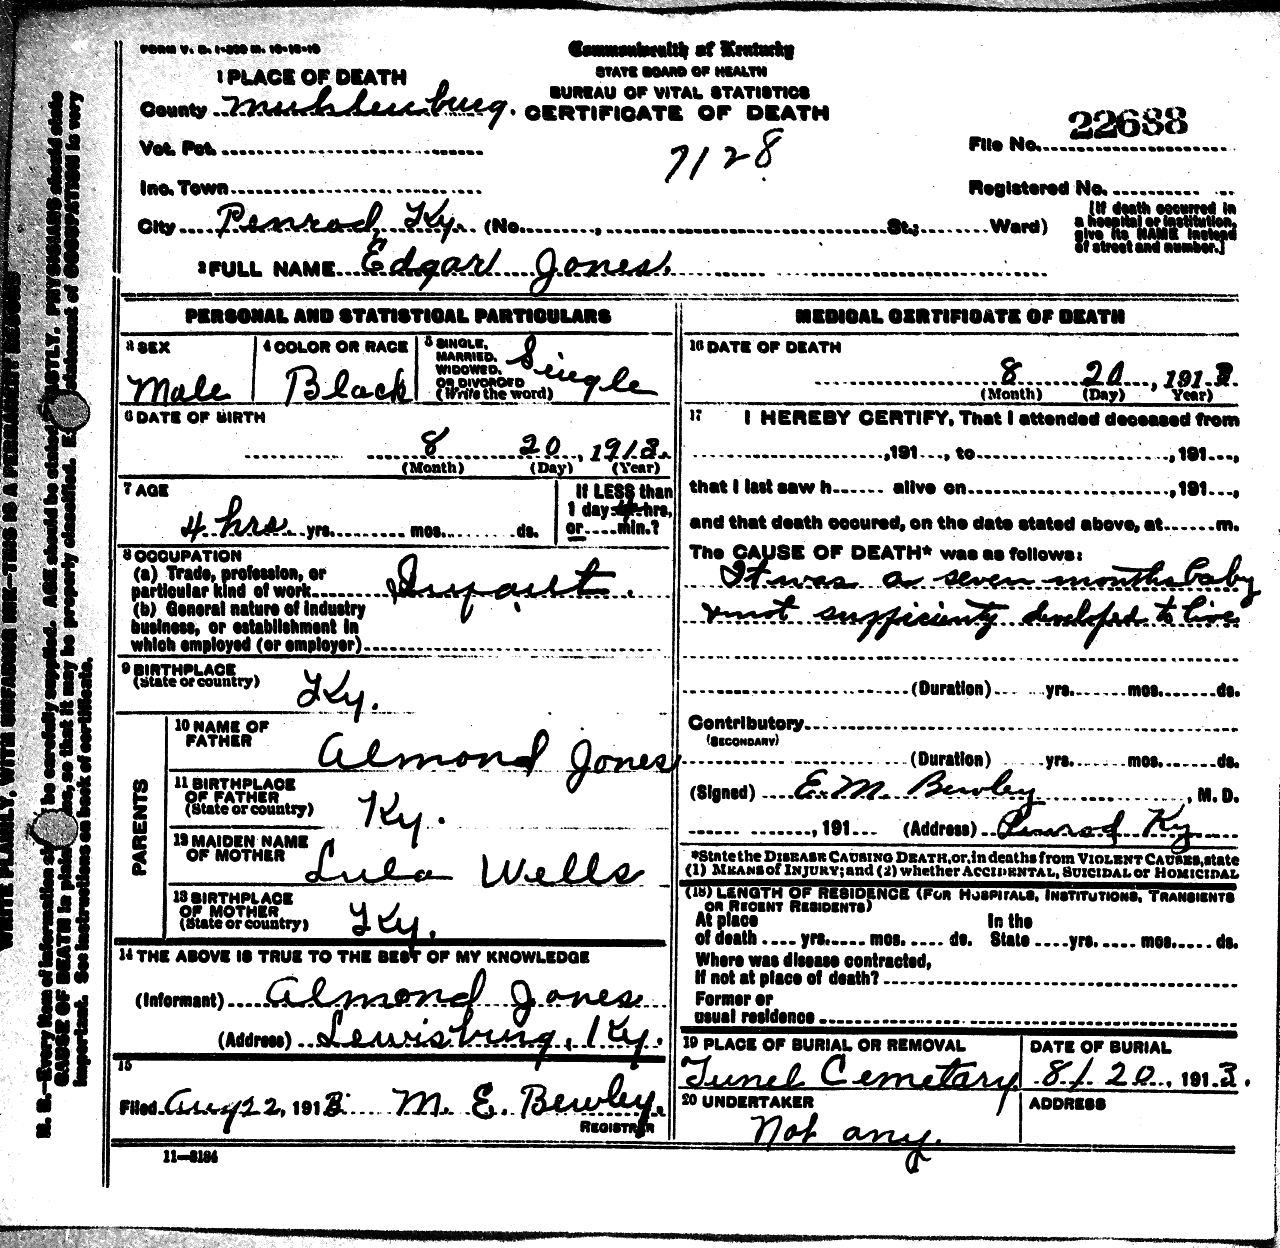 FORM V. S. 1-300 M. 10-18-10
Commonwealth of Kentucky
STATE BOARD OF HEALTH
BUREAU OF VITAL STATISTICS
CERTIFICATE OF DEATH
1 PLACE OF DEATH
County Muhlenburg.
Vot. Pct.
Inc. Town
City Penrod, Ky. (No. , St.; Ward)
7128
File No. 22688
Registered No.
[If death occurred in
a hospital or institution,
give its NAME instead
of street and number.]
2 FULL NAME Edgar Jones.
PERSONAL AND STATISTICAL PARTICULARS
3 SEX
Male
4 COLOR OR RACE
Black
5 SINGLE,
MARRIED,
WIDOWED,
OR DIVORCED
(Write the word)
Single
6 DATE OF BIRTH
8 20, 1913.
(Month) (Day) (Year)
7 AGE
4 hrs. yrs. mos. ds.
If LESS than
1 day 4 hrs,
or min.?
8 OCCUPATION
(a) Trade, profession, or
particular kind of work Infant.
(b) General nature of industry
business, or establishment in
which employed (or employer)
9 BIRTHPLACE
(State or country)
Ky.
PARENTS
10 NAME OF
FATHER
Almond Jones
11 BIRTHPLACE
OF FATHER
(State or country)
Ky.
12 MAIDEN NAME
OF MOTHER
Lula Wells
13 BIRTHPLACE
OF MOTHER
(State or country)
Ky.
14 THE ABOVE IS TRUE TO THE BEST OF MY KNOWLEDGE
(Informant) Almond Jones
(Address) Lewisburg, Ky.
15
Filed Aug 22, 1913 M. E. Bewley.
REGISTRAR
11—3184
MEDICAL CERTIFICATE OF DEATH
16 DATE OF DEATH
8 20, 1913
(Month) (Day) Year)
17 I HEREBY CERTIFY, That I attended deceased from
,191 , to ,191 ,
that I last saw h alive on ,191 ,
and that death occured, on the date stated above, at m.
The CAUSE OF DEATH* was as follows:
It was a seven months baby
& not sufficienty developed to live
(Duration) yrs. mos. ds.
Contributory
(SECONDARY)
(Duration) yrs. mos. ds.
(Signed) E. M. Bewley , M. D.
, 191 (Address) Penrod Ky
*State the DISEASE CAUSING DEATH, or, in deaths from VIOLENT CAUSES, state
(1) MEANS of INJURY; and (2) whether ACCIDENTAL, SUICIDAL or HOMICIDAL
(18) LENGTH OF RESIDENCE (FOR HOSPITALS, INSTITUTIONS, TRANSIENTS
OR RECENT RESIDENTS)
At place In the
of death yrs. mos. ds. State yrs. mos. ds.
Where was disease contracted,
If not at place of death?
Former or
usual residence
19 PLACE OF BURIAL OR REMOVAL
Tunel Cemetary
DATE OF BURIAL
8/20, 1913.
20 UNDERTAKER
Not any.
ADDRESS
WRITE PLAINLY, WITH UNFADING INK—THIS IS A PERMANENT RECORD
N. B.—Every item of information should be carefully supplied. AGE should be stated EXACTLY. PHYSICIANS should state
CAUSE OF DEATH in plain terms, so that it may be properly classified. Exact statement of OCCUPATION is very
important. See instructions on back of certificate.